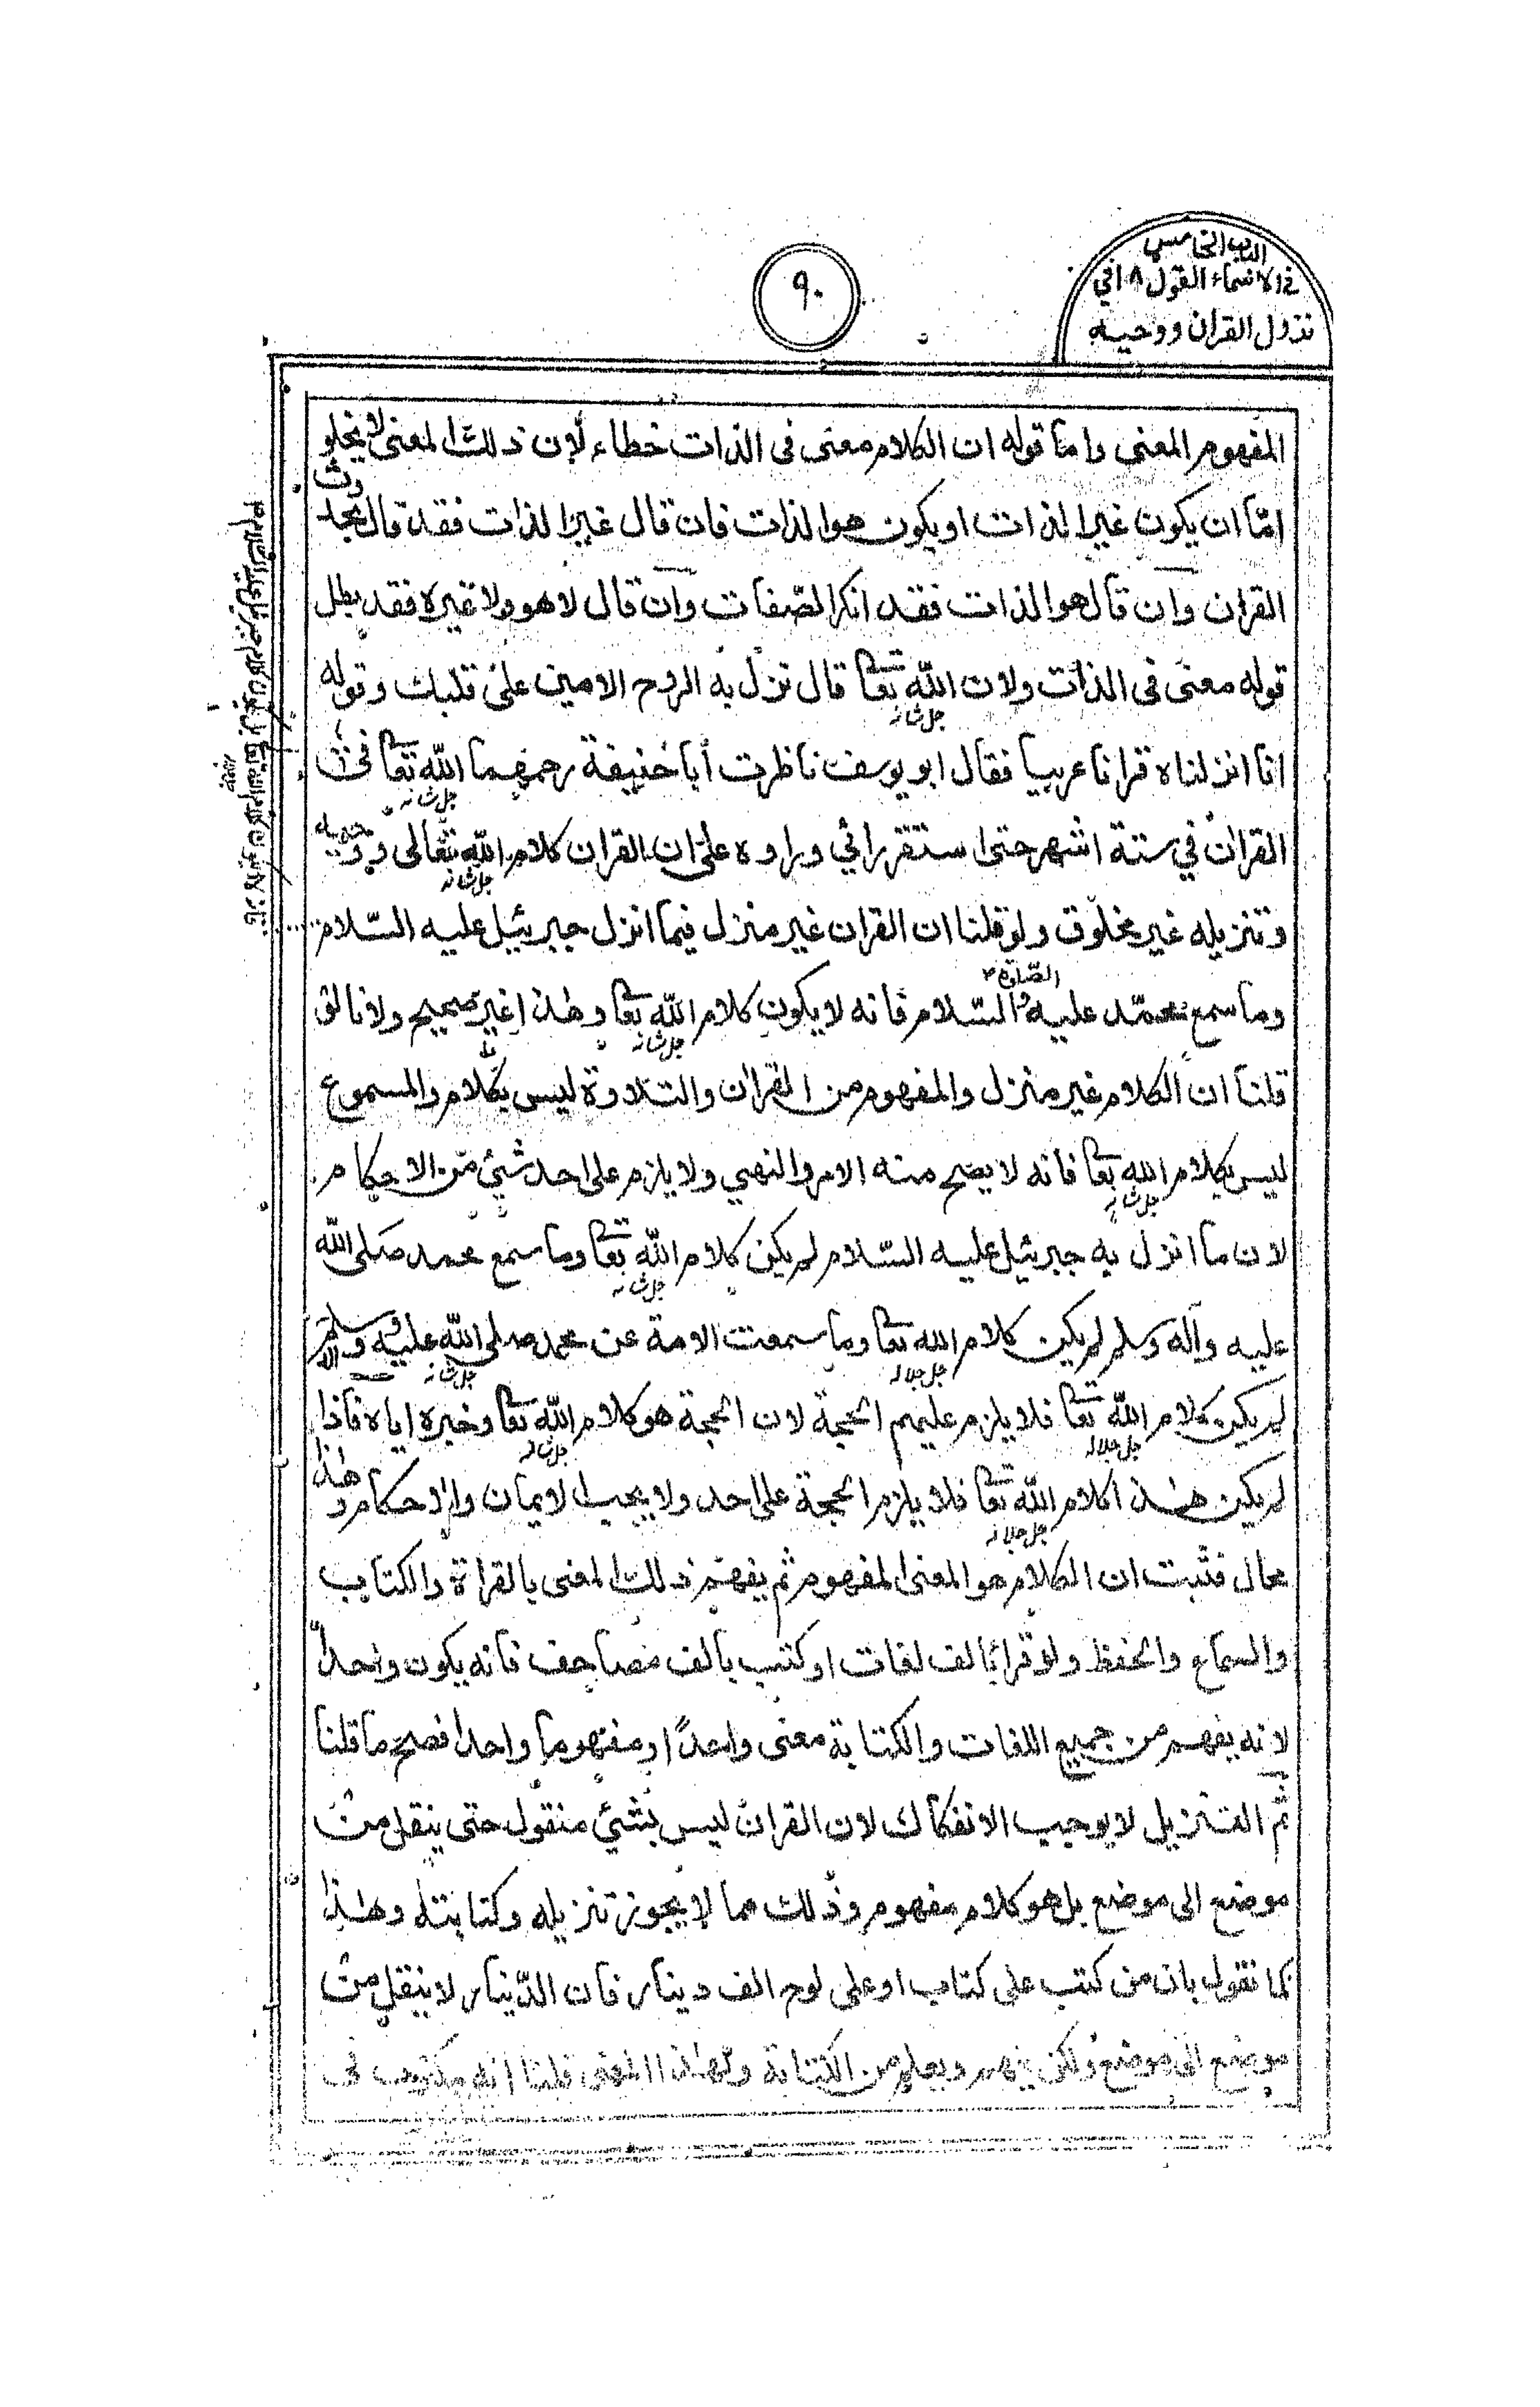 الباب الخامس
في الاشياء القول ٨ في
نزول القران ووحيه
٩٠
المفهوم المعنى واما قوله ان الكلام معنى فى الذات خطاء لان ذلك المعنى لا يخلو
امّا ان يكون غير الذات او يكون هو الذات فان قال غير الذات فقد قال بحدوث
القران وان قال هو الذات فقد انكر الصّفات وان قال لا هو ولا غيره فقد بطل
قوله معنى فى الذات ولان اللّه تعا جل شانه قال نزل به الروح الامين على قلبك وقوله
انا انزلناه قرانا عربيا فقال ابو يوسف ناظرت أبا حنيفة رحمهما اللّه تعا جل شانه فى
القران في ستة اشهر حتى استقر رائي وراوه على ان القران كلام اللّه تعالى جل شانه ووحيه
وتنزيله غير مخلوق ولو قلنا ان القران غير منزل فيما انزل جبرئيل عليه السّلام
وما سمع محمّد عليه الصّلوة والسّلام فانه لا يكون كلام اللّه تعا جل شانه وهذا غير صحيح ولانا لو
قلنا ان الكلام غير منزل والمفهوم من القران والتلاوة ليس بكلام والمسموع
ليس بكلام اللّه تعا جل شانه فانه لا يصح منه الامر والنهي ولا يلزم على احد شيئ من الاحكام
لان ما انزل به جبرئيل عليه السّلام لم يكن كلام اللّه تعا جل شانه وما سمع محمد صلى اللّه
عليه وآله وسلم لم يكن كلام اللّه تعا جل جلاله وما سمعت الامة عن محمد صلى اللّه عليه واله وسلم
لم يكن كلام اللّه تعا جل جلاله فلا يلزم عليهم الحجة لان الحجة هو كلام اللّه تعا جل شانه وخبره اياه فاذا
لم يكن هذا كلام اللّه تعا جل جلاله فلا يلزم الحجة على احد ولا يجب الايمان والاحكام وهذا
محال فثبت ان الكلام هو المعنى المفهوم ثم يفهم ذلك المعنى بالقراة والكتاب
والسماع والحفظ ولو قرا بالف لغات او كتب بالف مصاحف فانه يكون واحداً
لانه يفهم من جميع اللغات والكتابة معنى واحداً او مفهوما واحدا فصح ما قلنا
ثم التنزيل لا يوجب الانفكاك لان القران ليس بشيئ منقول حتى ينقل من
موضع الى موضع بل هو كلام مفهوم وذلك مما لا يجوز تنزيله وكتابته وهذا
كما نقول بان من كتب على كتاب او على لوح الف دينار فان الدّينار لا ينقل من
موضع الى موضع ولكن يفهم ويعلم من الكتابة ولهذا المعنى قلنا انه مكتوب فى